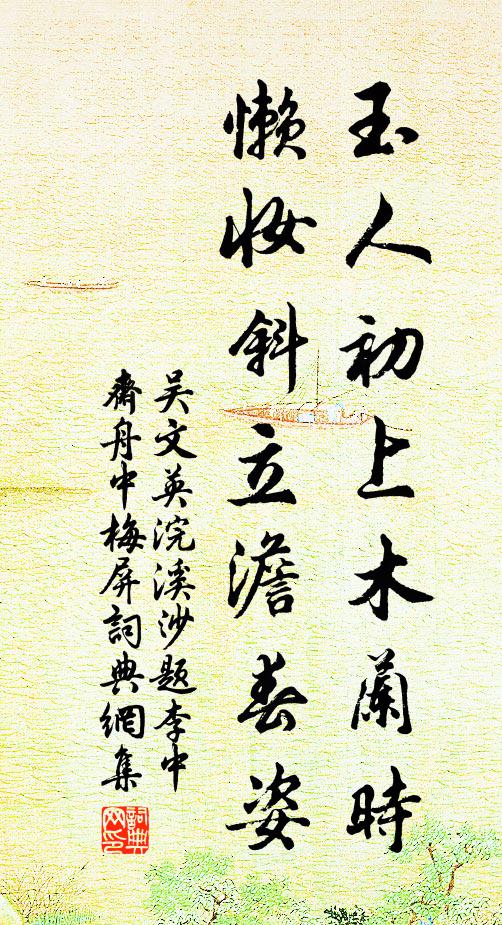 玉人初上木蘭時
懒妆斜立澹春姿
吴文英浣溪沙题李中
齋舟中梅屏詞典網集
詞典网印